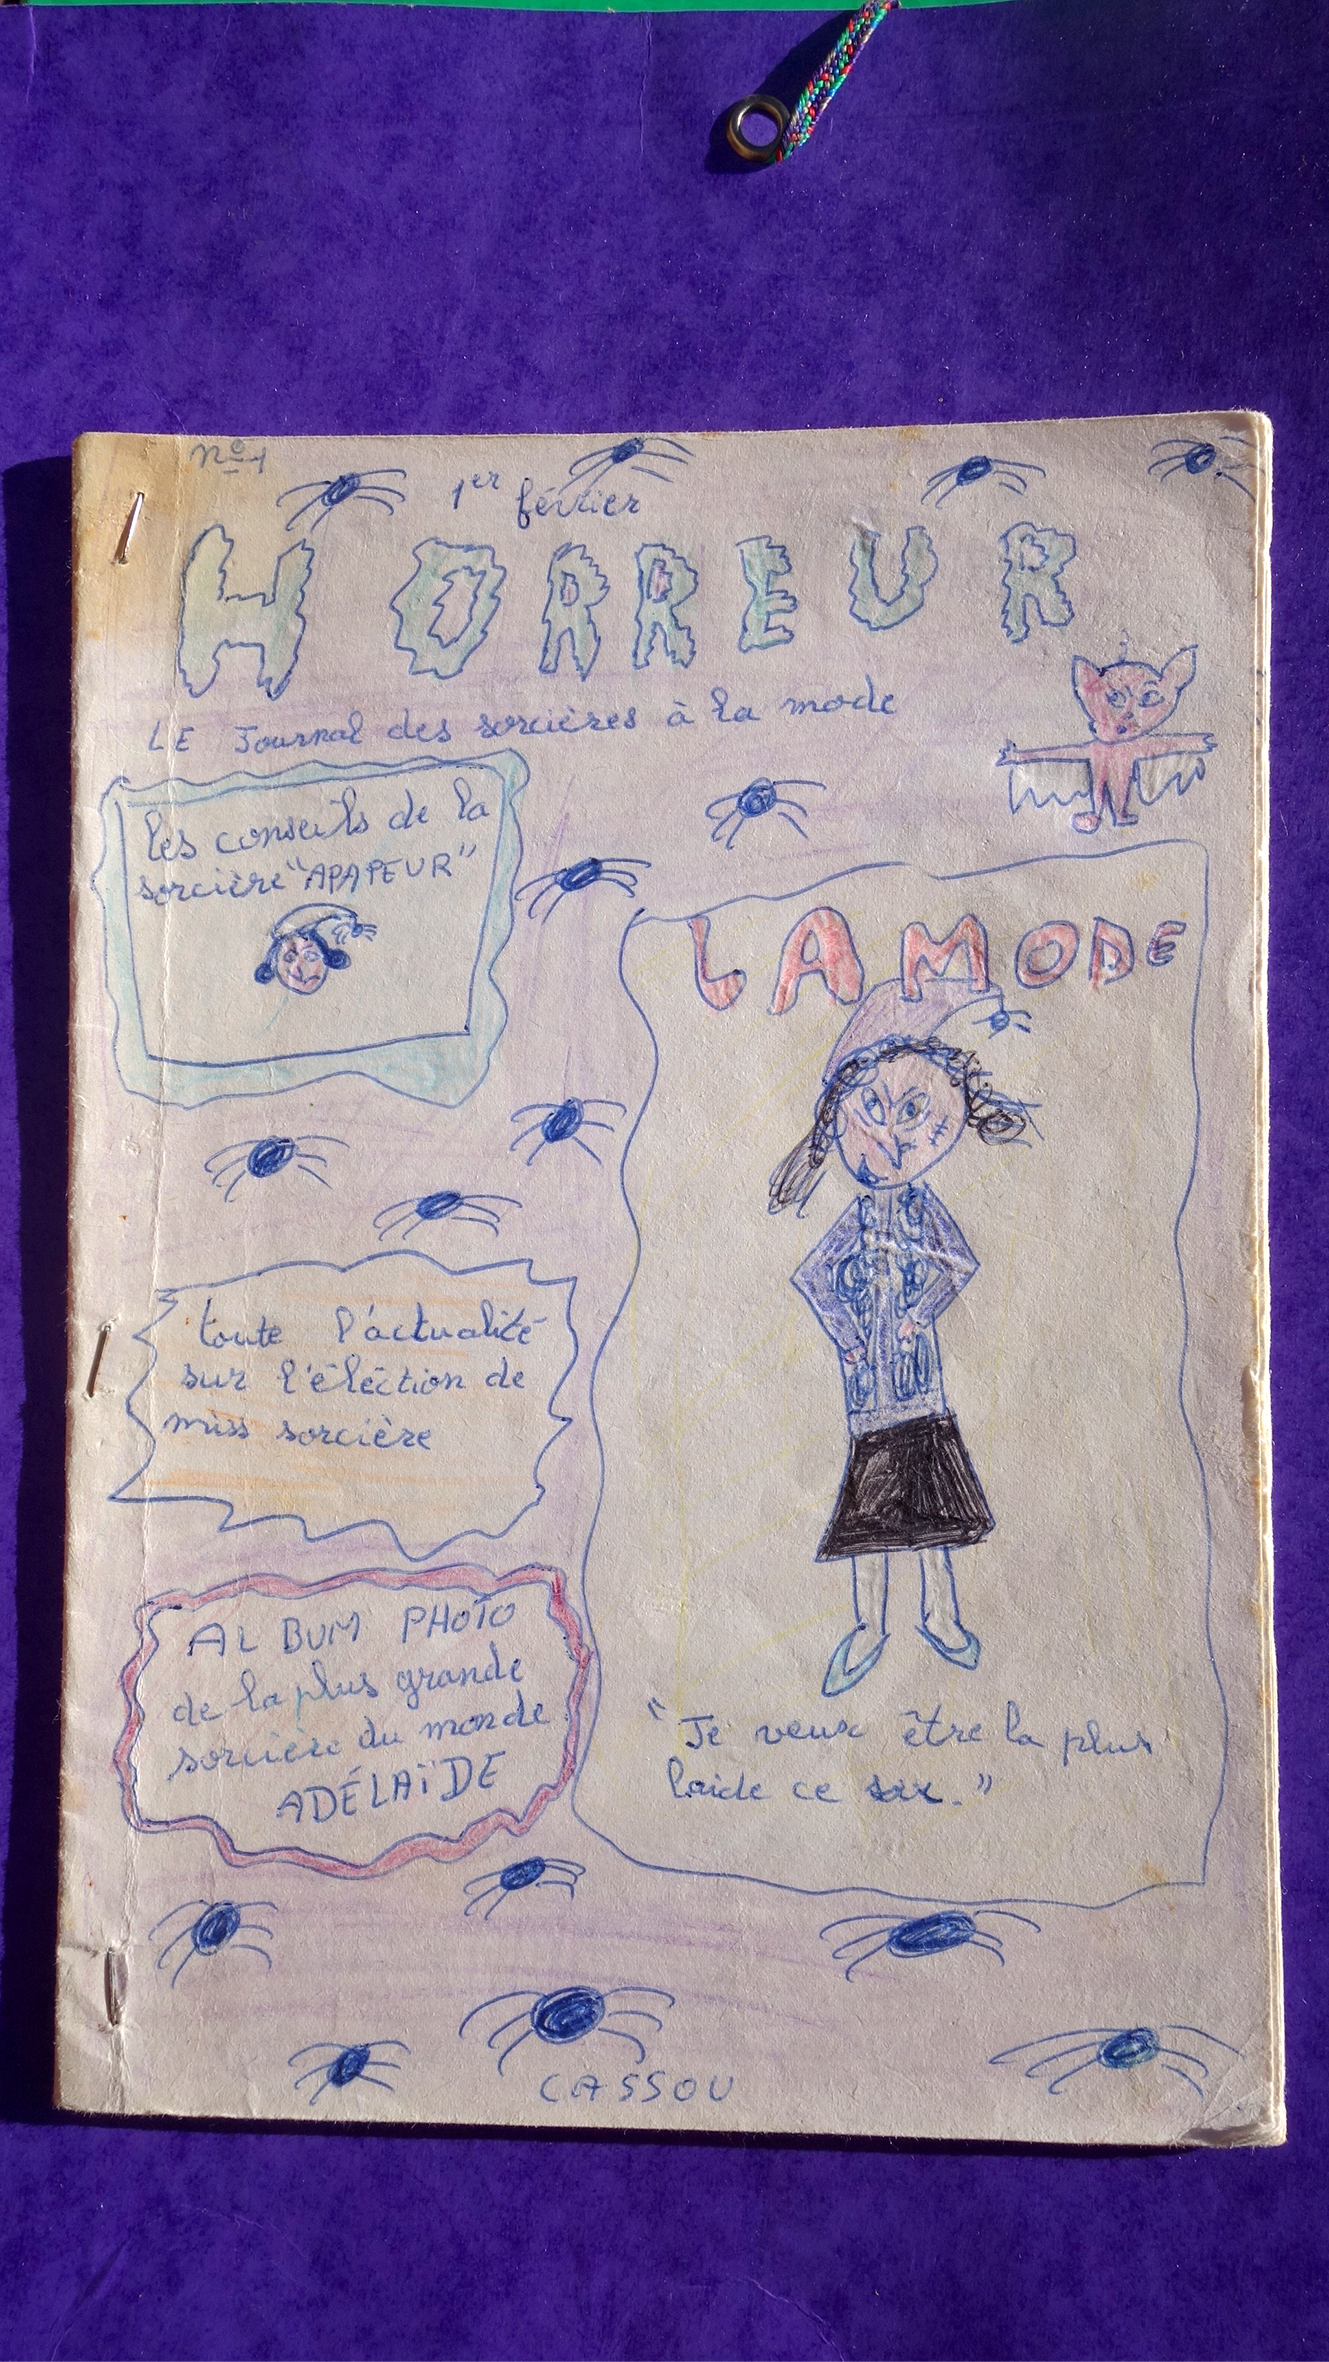 n°1
1er février
HORREUR
LE Journal des sorcières à la mode
les conseils de la
sorcière "APAPEUR"
LA MODE
toute l'actualité
sur l'éléction de
miss sorcière
ALBUM PHOTO
de la plus grande
sorcière du monde
ADÉLAÏDE
"Je veux être la plus
laide ce soir."
CASSOU